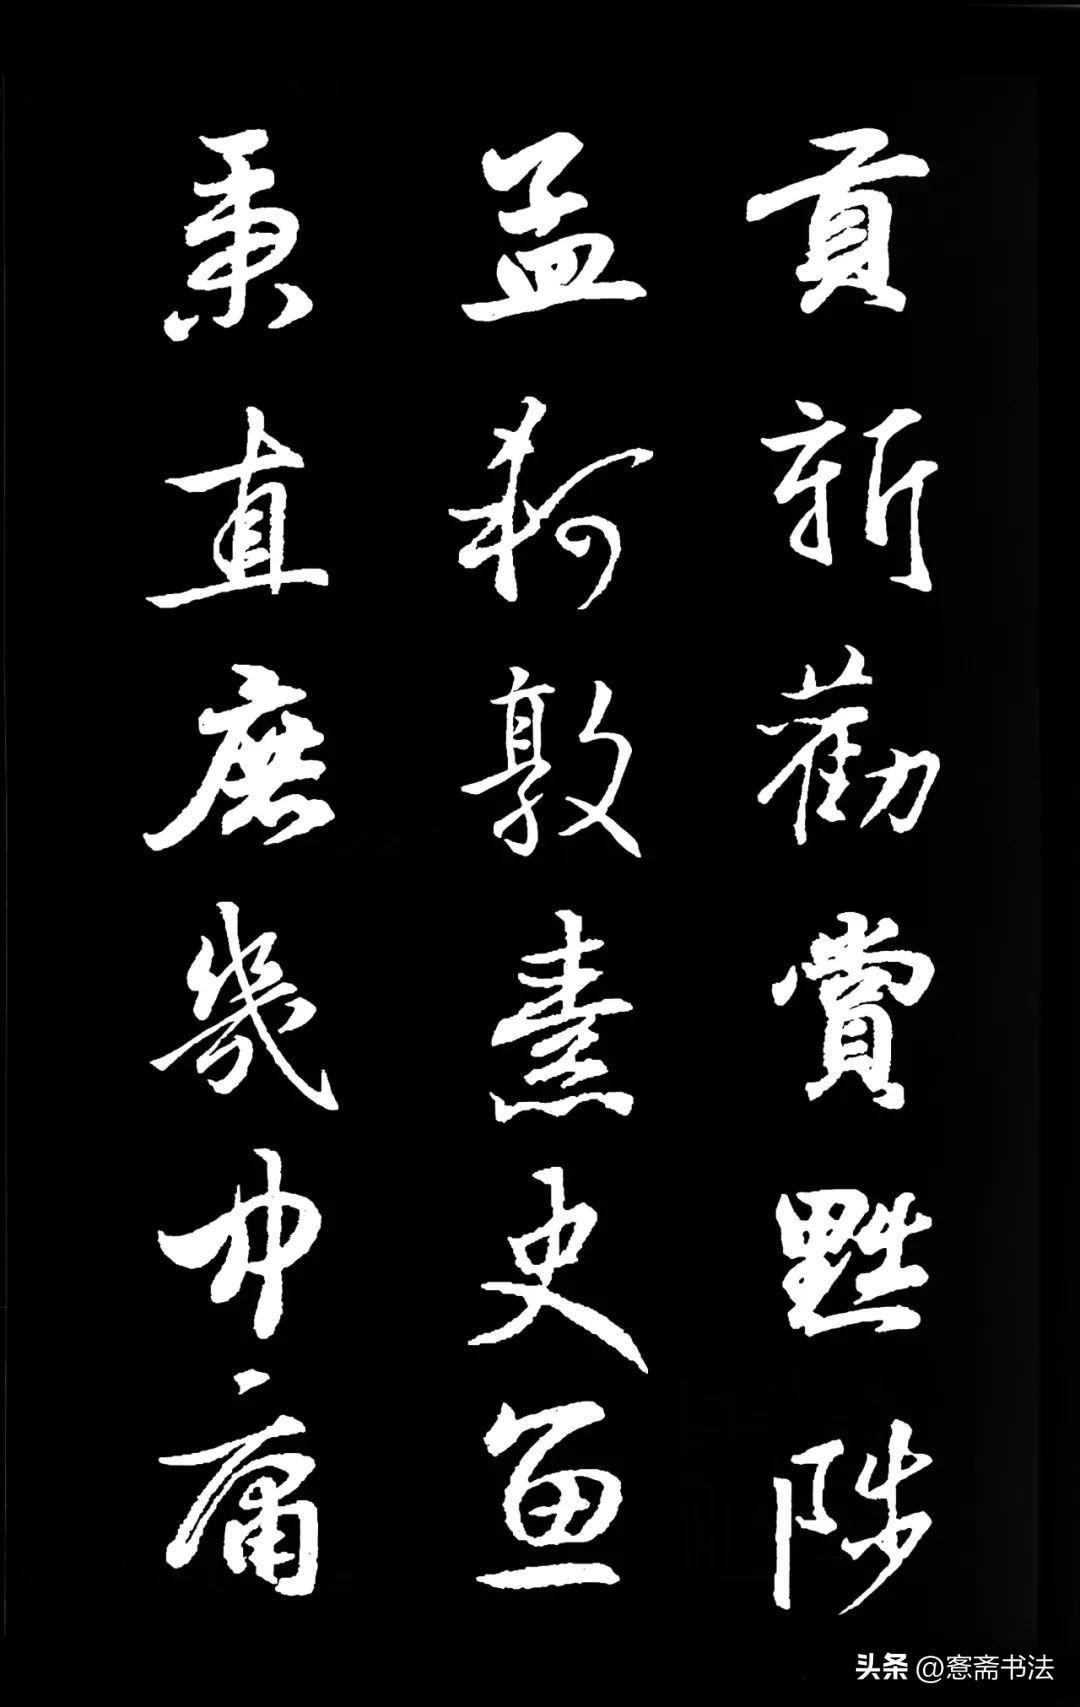 貢新勸賞黜陟
孟軻敦素史魚
秉直庶幾中庸
头条 @窓斋书法